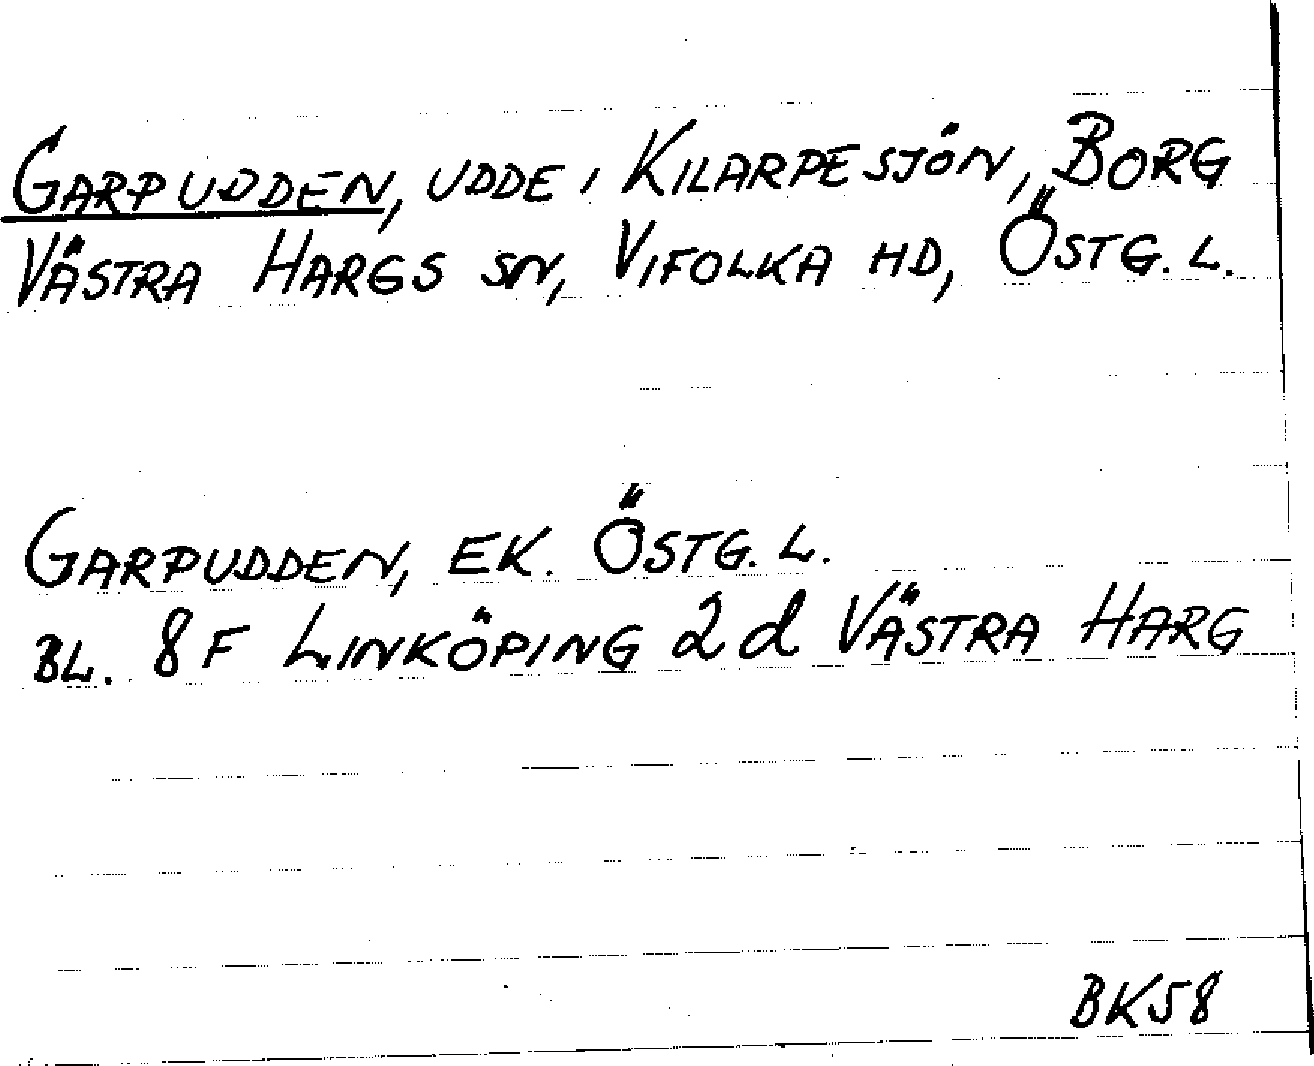 GARPUDDEN, UDDE I KILARPESJÖN, BORG
VÄSTRA HARGS SN, VIFOLKA HD, ÖSTG. L.
GARPUDDEN, EK. ÖSTG. L.
BL. 8F LINKÖPING 2d VÄSTRA HARG
BK58